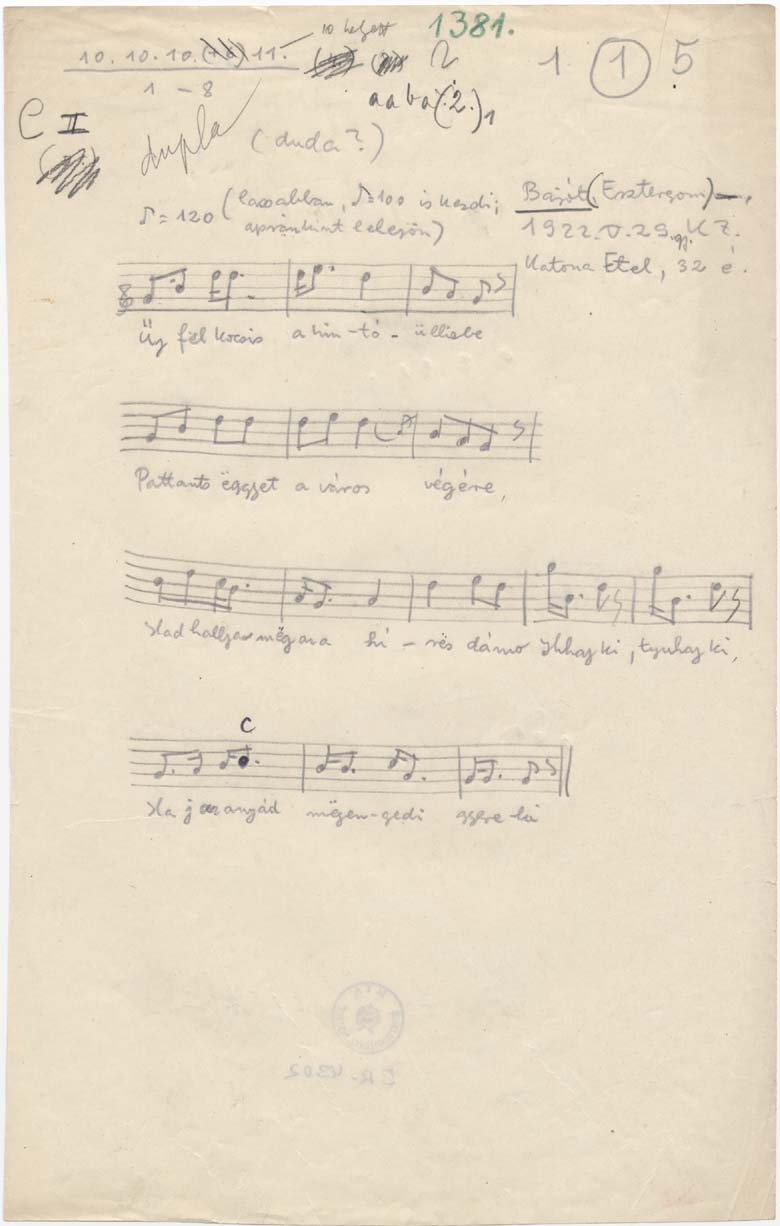 10 helyett 1381.
10. 10. 10. 11. 2 1 1 5
1 - 8
a a b a (: 2. )1
C II
dupla (duda?)
♪ = 120 (lassabban, ♪=100 is kezdi;
apránkint belejön)
Bajót (Esztergom)
1922. V. 29. gy. K Z.
Katona Etel, 32 é.
Üj fël kocsis a hin-tó- üllisbe
Pattants ëggyet a város végére,
Had halljameg a hí - rës dámo Ihhaj ki, tyuhaj ki,
C
Ha j az anyád mëgen-gedi gyere-ki
C R - 4302